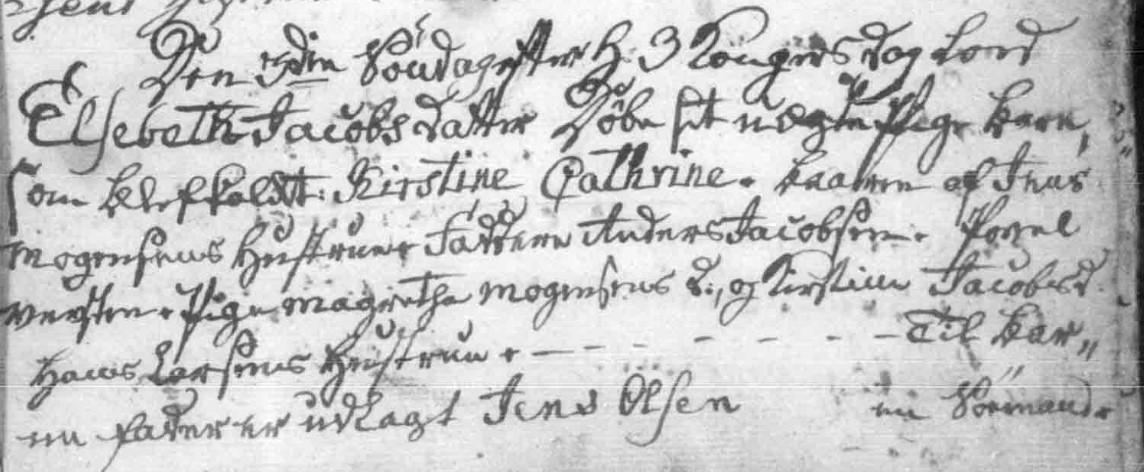 Den 3die Søndag efter H. 3 Kongers dag loed
Elsebeth Jacobsdatter Døbe sit uægte Pige barn,,
som blef kaldt: Kirstine Cathrine. baaren af Jens
Mogensens Hustrue. Faddere Anders Jacobsen. Povel
Pige Magrethe Mogensens D:, og Kirstine Jacobsd.
Hans Larsens Hustrue. – – – – – – – Til bar,,
ne fader er udlagt Jens Olsen en Søemand.